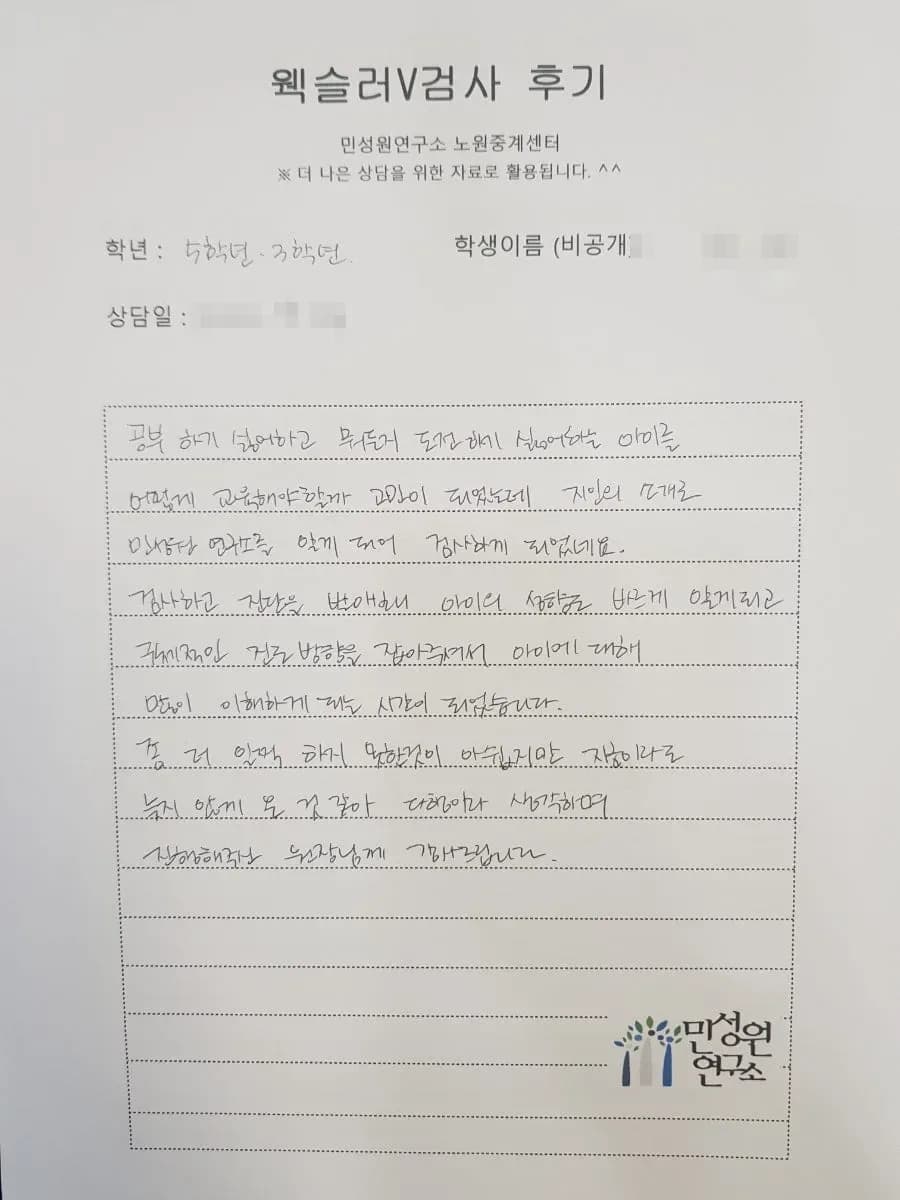 웩슬러V검사 후기
민성원연구소 노원중계센터
※ 더 나은 상담을 위한 자료로 활용됩니다. ^^
학년 : 5학년 . 3학년. 학생이름 (비공개)
상담일 :
공부 하기 싫어하고 뭐든지 도전하기 싫어하는 아이를
어떻게 교육해야할까 고민이 되었는데 지인의 소개로
민성원 연구소를 알게 되어 검사하게 되었네요.
검사하고 진단을 받으며 아이의 성향을 바르게 알게되고
구체적인 진로방향을 잡아주셔서 아이에 대해
많이 이해하게 되는 시간이 되었습니다.
좀 더 일찍 하지 못한것이 아쉽지만 지금이라도
늦지 않게 온 것 같아 다행이라 생각하며
진행해주신 원장님께 감사드립니다.
민성원
연구소